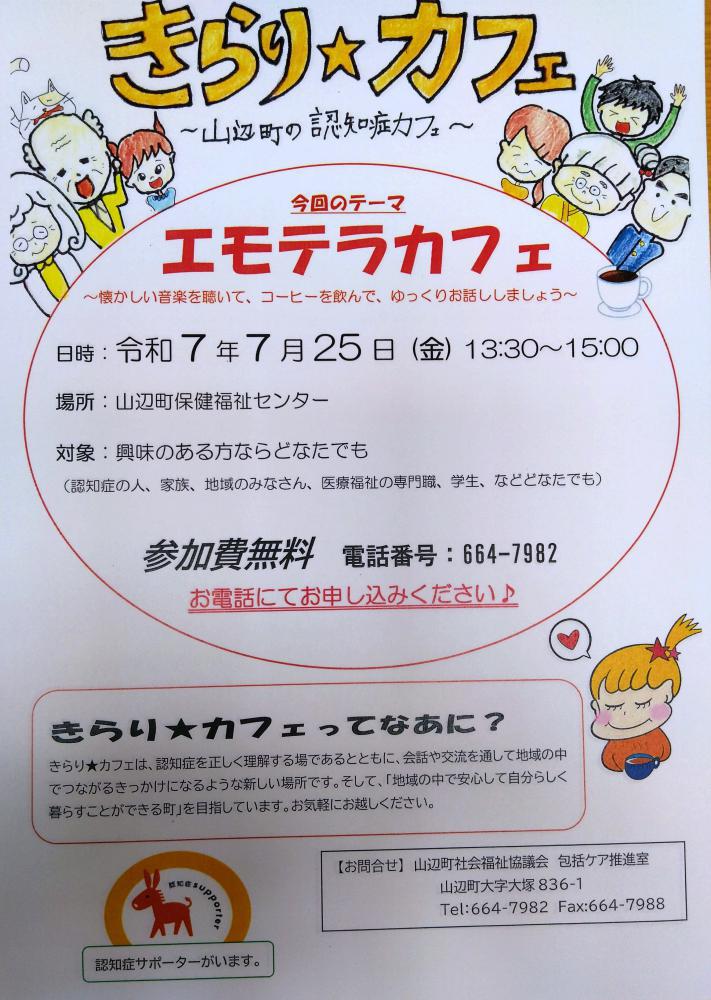 きらり★カフェ
～山辺町の認知症カフェ～
今回のテーマ
エモテラカフェ
～懐かしい音楽を聴いて、コーヒーを飲んで、ゆっくりお話ししましょう～
日時：令和７年７月25日（金）13:30～15:00
場所：山辺町保健福祉センター
対象：興味のある方ならどなたでも
（認知症の人、家族、地域のみなさん、医療福祉の専門職、学生、などどなたでも）
参加費無料　電話番号：664-7982
お電話にてお申し込みください♪
きらり★カフェってなあに？
きらり★カフェは、認知症を正しく理解する場であるとともに、会話や交流を通して地域の中
でつながるきっかけになるような新しい場所です。そして、「地域の中で安心して自分らしく
暮らすことができる町」を目指しています。お気軽にお越しください。
認知症supporter
認知症サポーターがいます。
【お問合せ】山辺町社会福祉協議会　包括ケア推進室
山辺町大字大塚836-1
Tel:664-7982　Fax:664-7988